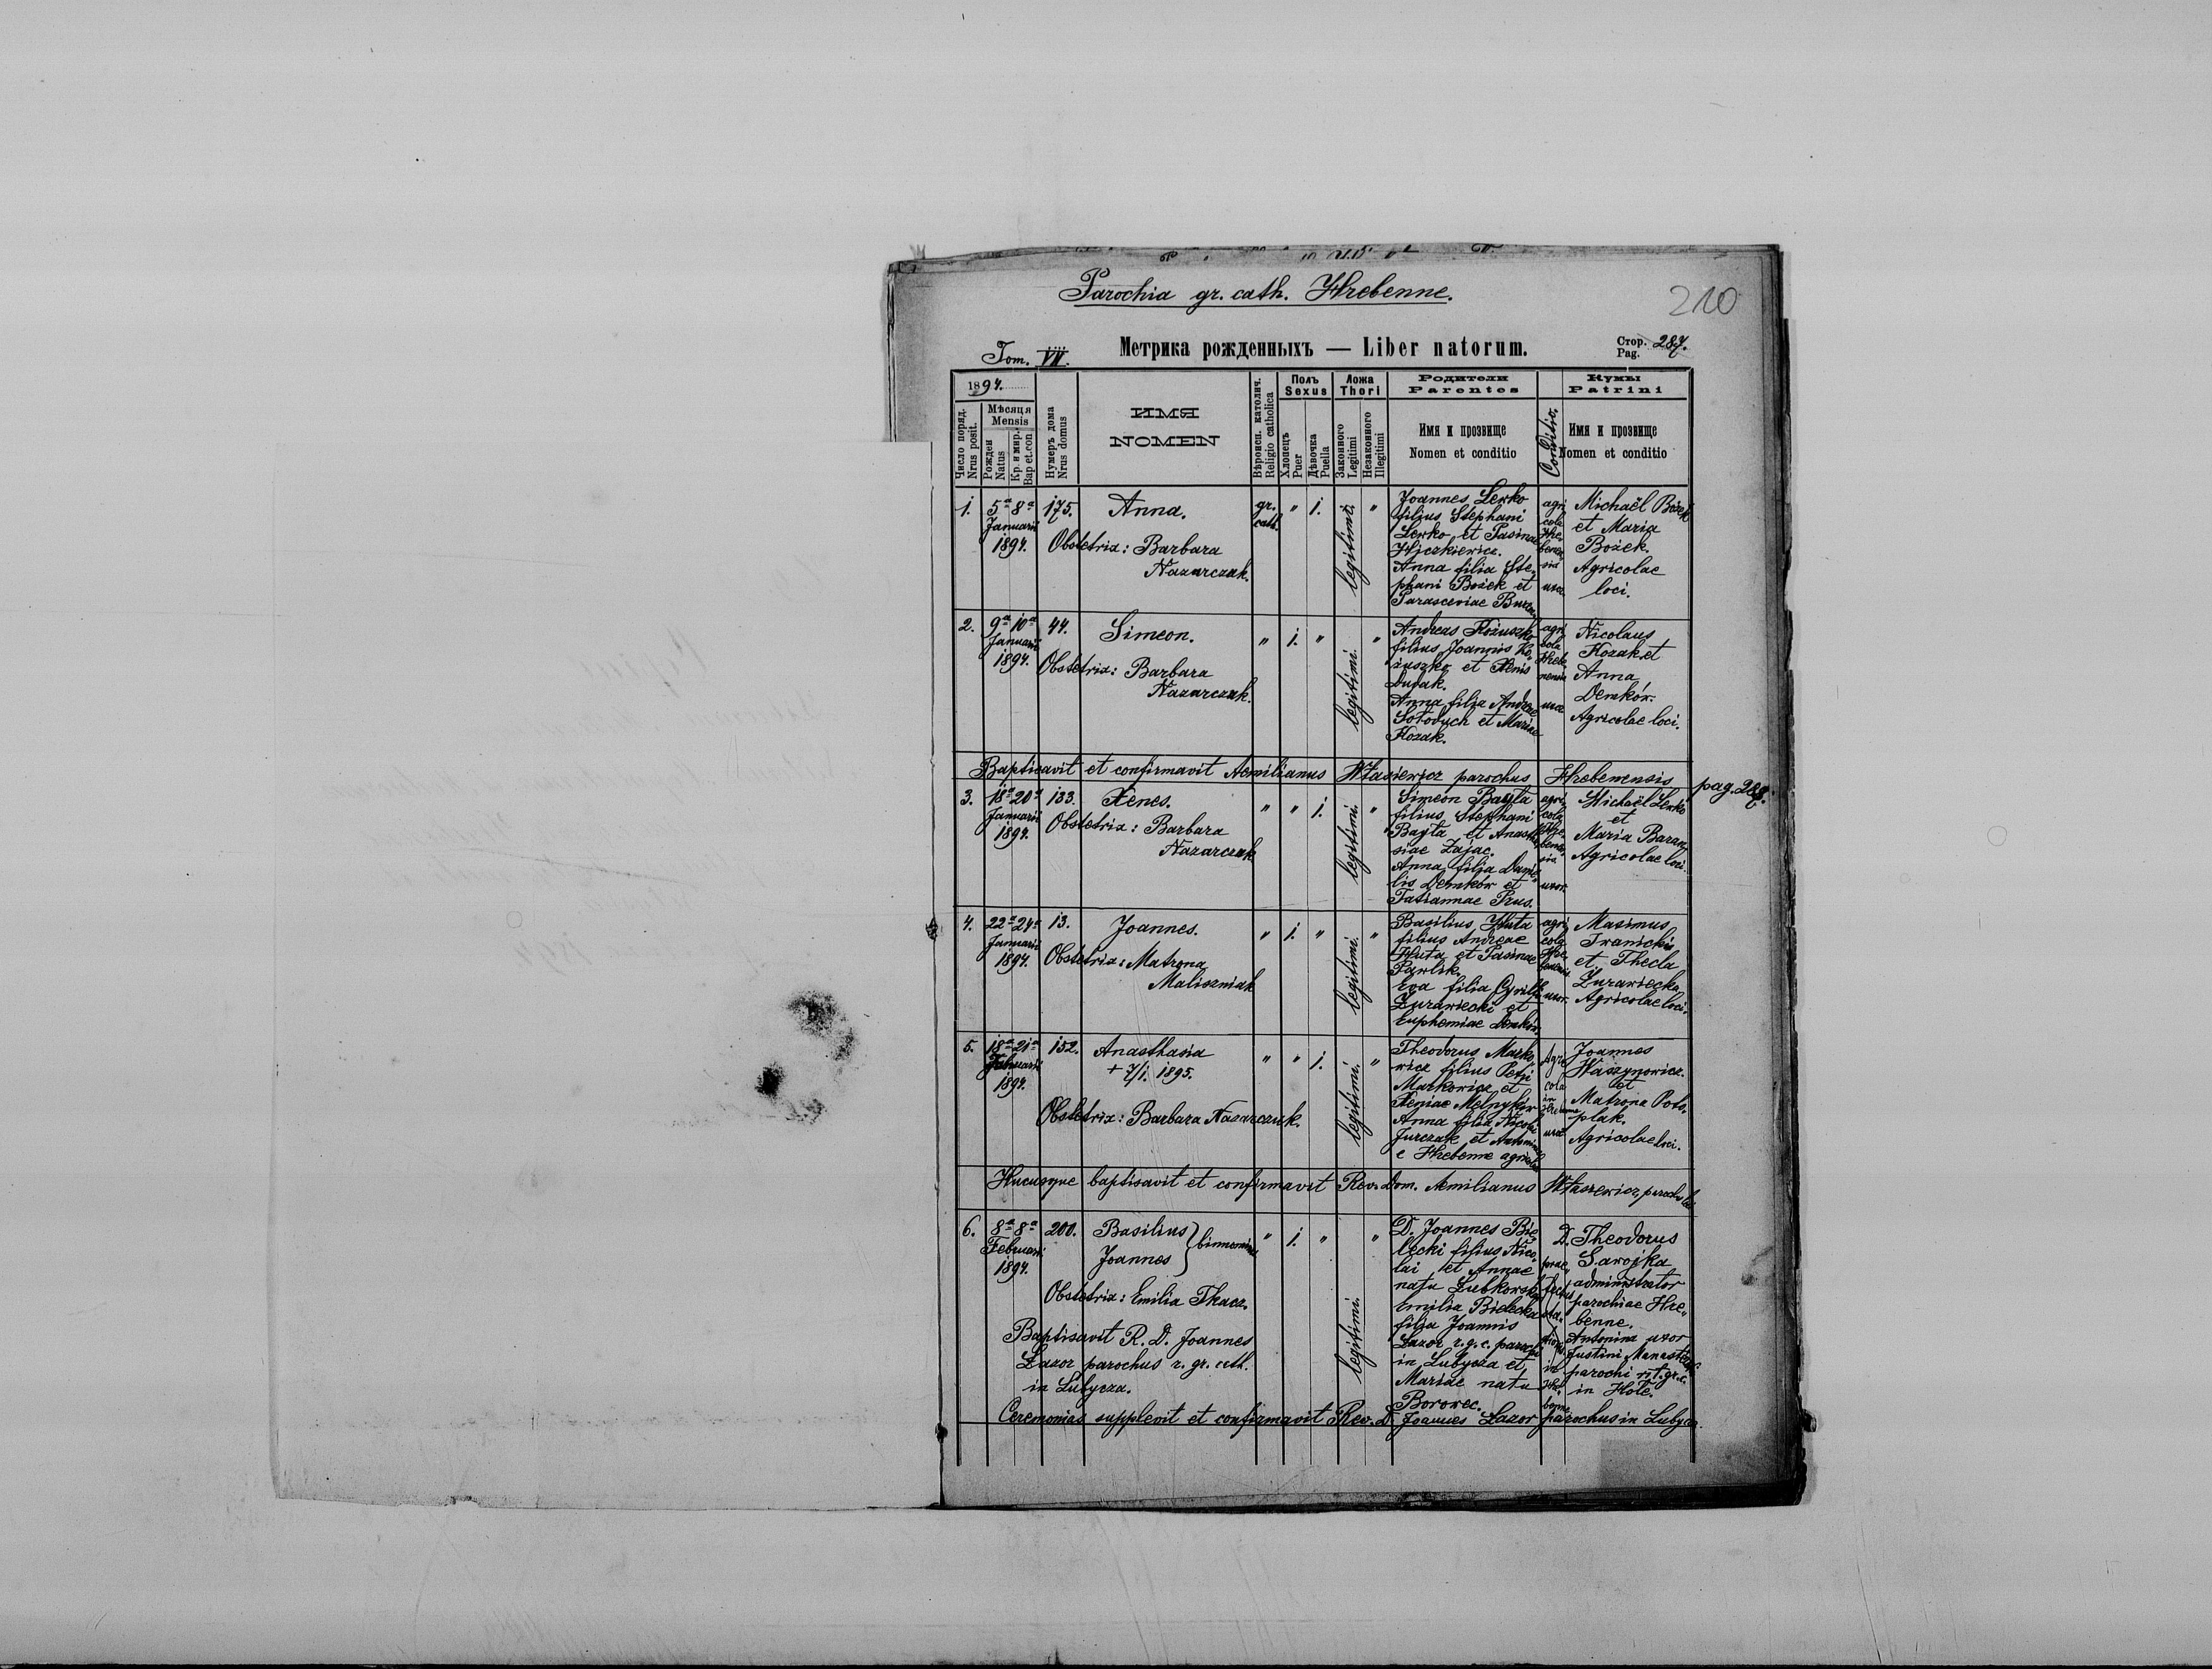 Parochia gr. cath. Hrebenne.
210
Tom. VII.
Метрика рожденныхъ — Liber natorum.
Стор. Pag. 287.
1894.
Число поряд. Nrus posit.
Мѣсяця Mensis
Рожден Natus
Кр. и мир. Bap et.con
Нумеръ дома Nrus domus
ИМЯ
NOMEN
Вѣроисп. католич. Religio catholica
Полъ Sexus
Хлопецъ Puer
Дѣвочка Puella
Ложа Thori
Законного Legitimi
Незаконного Illegitimi
Родители
Parentes
Имя и прозвище
Nomen et conditio
Conditio.
Кумы
Patrini
Имя и прозвище
Nomen et conditio
1. 5a 8a Januarii 1894. 175. Anna. gr. cath. " 1. legitimi. "
Obstetrix: Barbara
Nazarczak.
Joannes Lerko
filius Stephani
Lerko et Pasinae
Anna filia Ste,
phani Bożek et
Parasceviae
agri
cola
Hre,
benen,
sis
uxor
Michaël Bożek
et Maria
Bożek.
Agricolae
loci.
2. 9a 10a Januarii 1894. 44. Simeon. " 1. " legitimi. "
Obstetrix: Barbara
Nazarczak.
Andreas Kożuszko
filius Joannis Ko,
żuszko et Xenis
Dudak.
Anna filia Andreae
Sołodych et Mariae
Kozak.
agri
cola
Hreb,
nensis
uxor
Nicolaus
Kozak et
Anna
Demków.
Agricolae loci.
Baptisavit et confirmavit Aemilianus Własiewicz parochus Hrebenensis
pag. 288.
3. 18a 20a Januarii 1894. 133. Xenes. " " 1. legitimi. "
Obstetrix: Barbara
Nazarczak
Simeon Bayta
filius Stephani
Bayta et Anastha,
siae Zając.
Anna filia Danie,
lis Demków et
Tatiannae Prus.
agri
cola
Hre,
benen,
sis.
uxor.
Michaël Lerko
et
Maria Baran,
Agricolae loci.
4. 22a 24a Januarii 1894. 13. Joannes. " 1. " legitimi. "
Obstetrix: Matrona
Maliszniak
Basilius Huta
filius Andreae
Huta et Pasinae
Pawlik.
Eva filia Cyrilli
Żurawiecki et
Euphemiae Demków.
agri
cola
Hre
benensis
uxor.
Maximus
Iranicki
et Thecla
Żurawiecka,
Agricolae loci.
5. 18a 21a Februarii 1894. 152. Anasthasia " " 1. legitimi. "
+ 7/1. 1895.
Obstetrix: Barbara Nazarczuk.
Theodorus Marko,
wicz filius Petri
Markowicz et
Xeniae Melnyków
Anna filia Nicolai
Jurczak et Antoninae
e Hrebenne agricolae
Agri
cola
in
Hrebenne
uxor
Joannes
Waszynowicz.
et
Matrona Poto,
plak.
Agricolae loci.
Hucusque baptisavit et confirmavit Rev. Dom. Aemilianus Własiewicz, parochus loci
6. 8a 8a Februarii 1894. 200. Basilius } binominis " 1. " legitimi. "
Joannes
Obstetrix: Emilia Tkacz.
Baptisavit R. D. Joannes
Łazor parochus r. gr. cath.
in Lubycza.
D. Joannes Bie,
lecki filius Nico,
lai et Annae
natu Lubkowska
Emilia Bielecka
filia Joannis
Łazor r. g. c. parochi
in Lubycza et
Mariae natu
Borowec.
prae,
fectus
sta,
tionis
in
Hre,
benne
D. Theodorus
Sarojka
administrator
parochiae Hre,
benne.
Antonina uxor
Justini Manasterski
parochi rit. gr. c.
in Hole.
Ceremonias supplevit et confirmavit Rev. D. Joannes Łazor parochus in Lubycza.